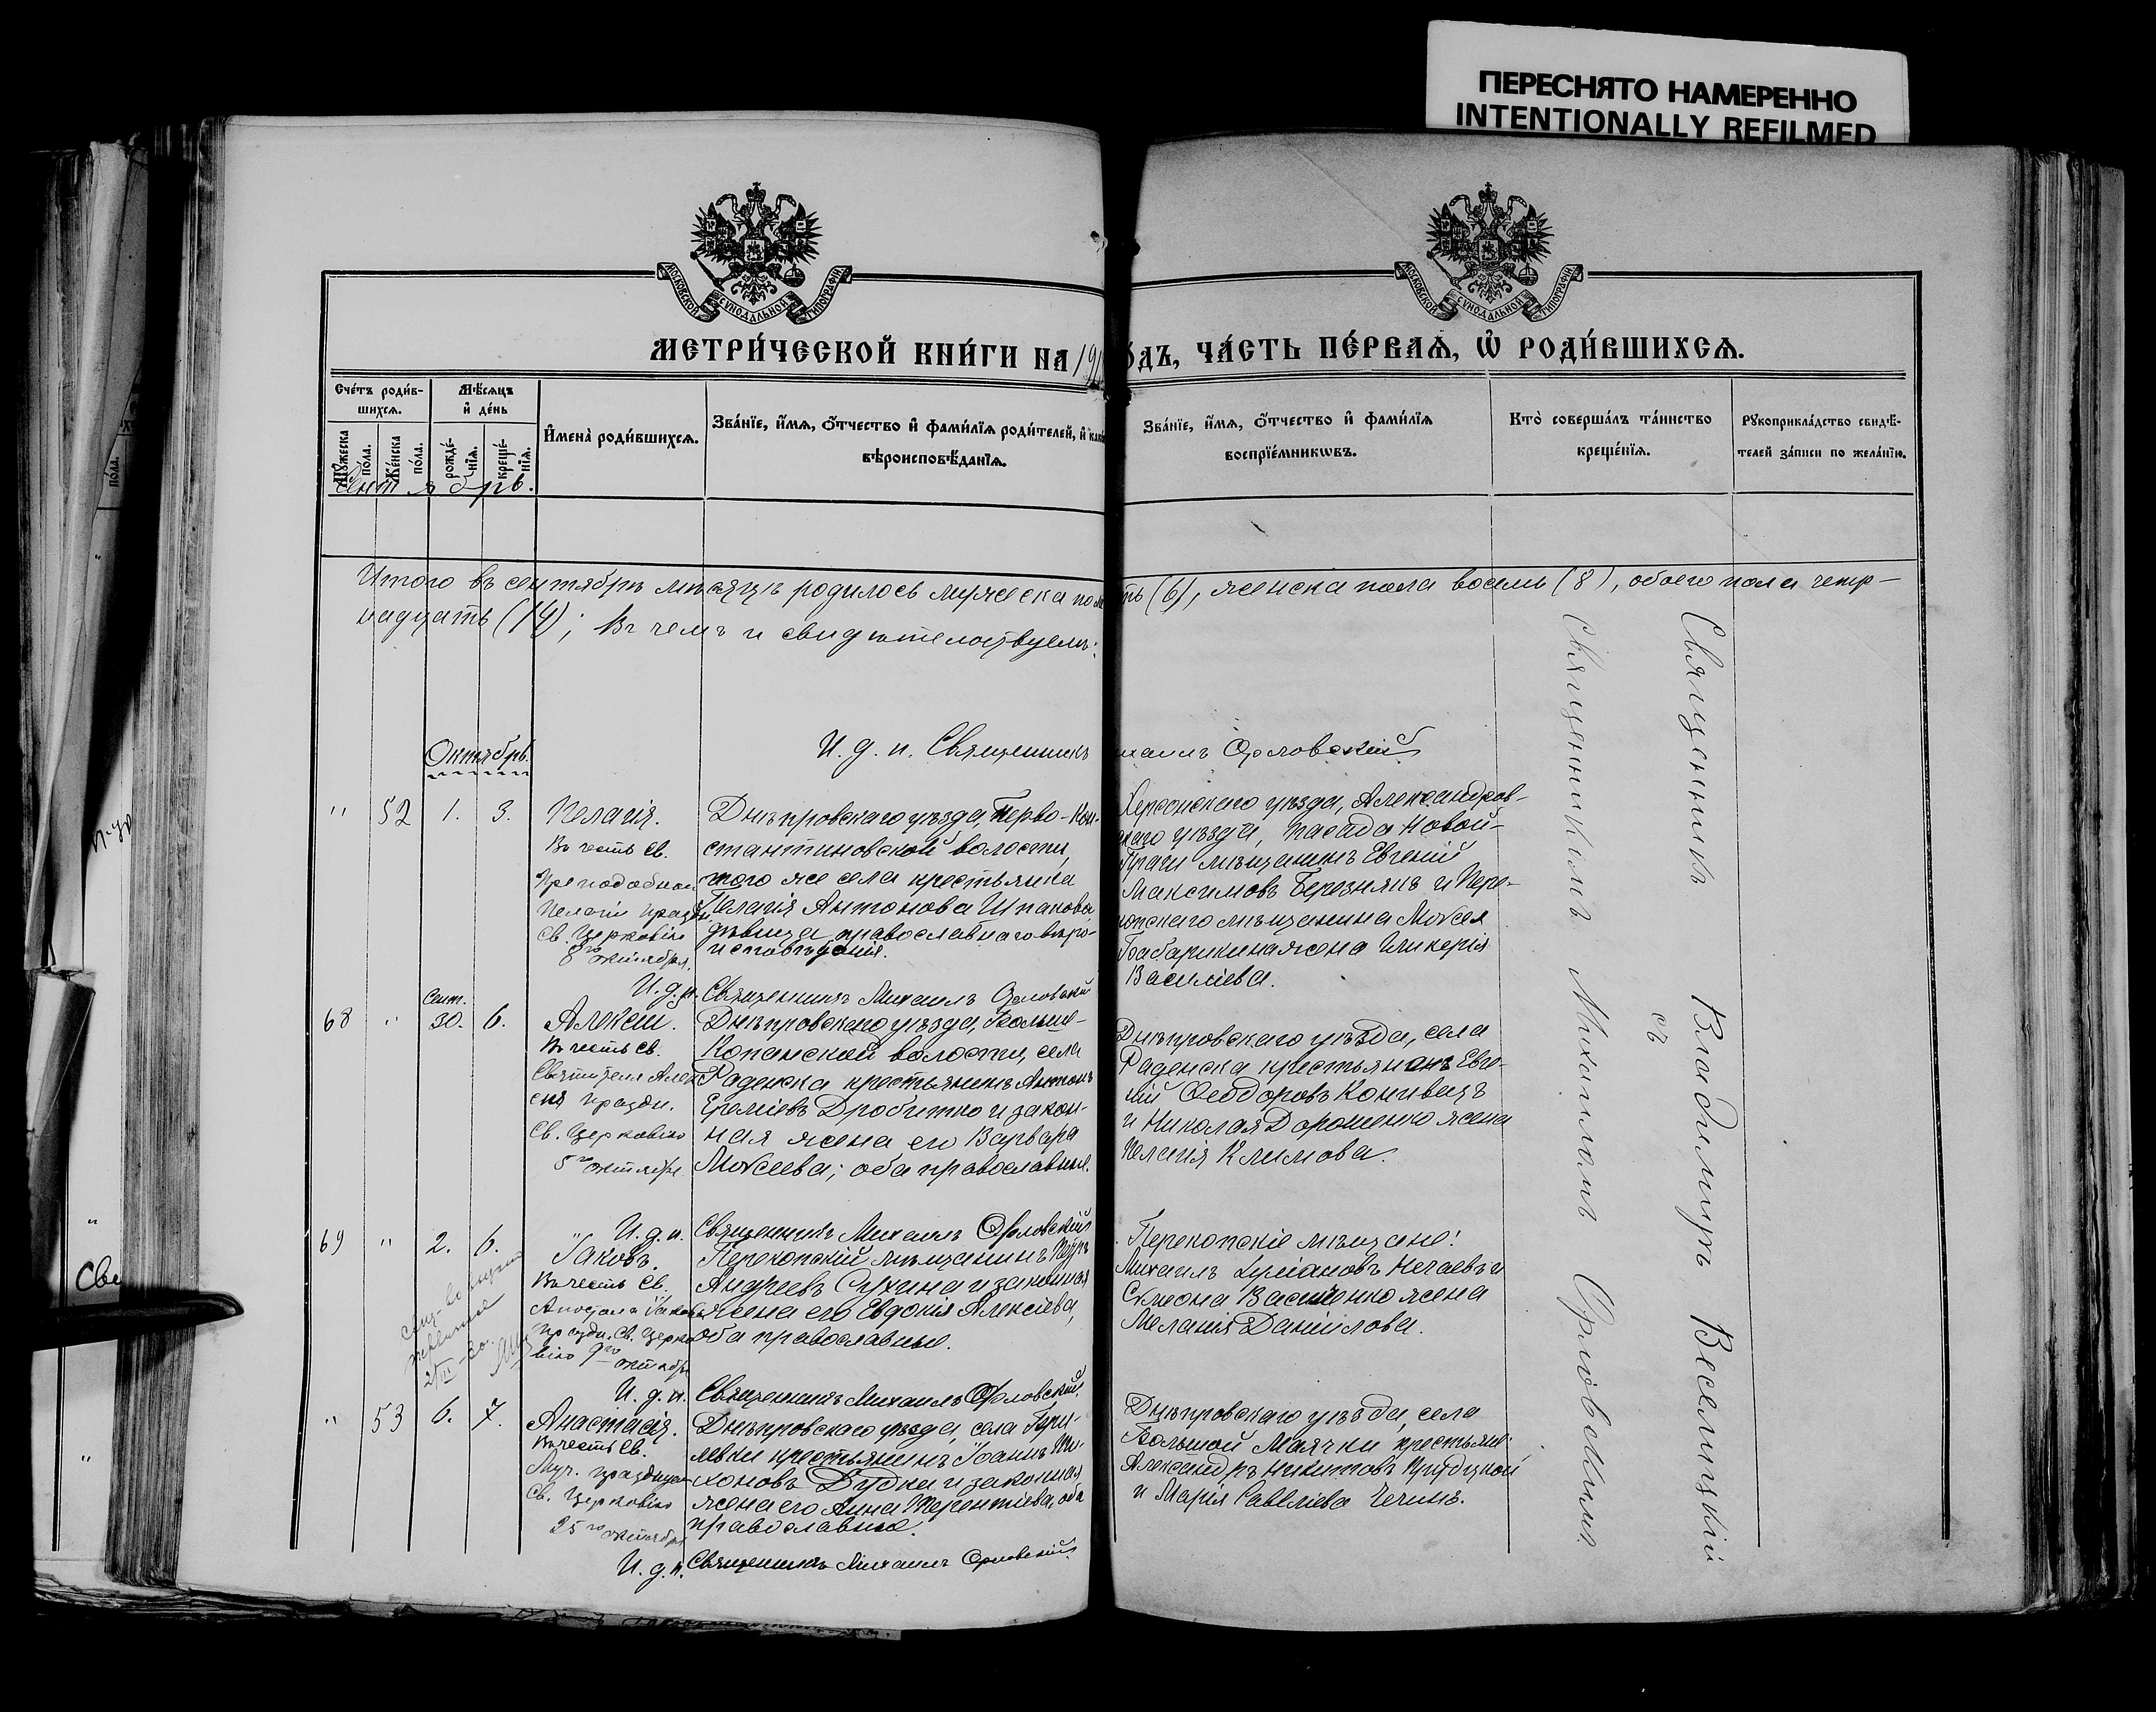 ПЕРЕСНЯТО НАМЕРЕННО
INTENTIONALLY REFILMED
МОСКОВСКОЙ СѴНОДАЛЬНОЙ ТИПОГРАФІИ
МОСКОВСКОЙ СѴНОДАЛЬНОЙ ТИПОГРАФІИ
МЕТРИ́ЧЕСКОЙ КНИ́ГИ НА 191
О́ДЪ, ЧА́СТЬ ПЕ́РВАѦ, Ѡ҆ РОДИ́ВШИХСѦ.
Сче́тъ роди́в-
шихсѧ.
Мѣ́сѧцъ
и҆ де́нь
Мꙋ́жеска
по́ла.
Же́нска
по́ла.
рожде́-
нїѧ.
креще́-
нїѧ.
И҆мена̀ роди́вшихсѧ.
Зва́нїе, и҆́мѧ, ѻ҆́тчество и҆ фами́лїѧ роди́телей, и҆
вѣроисповѣ́данїѧ.
Зва́нїе, и҆́мѧ, ѻ҆́тчество и҆ фами́лїѧ
воспрїе́мникѡвъ.
Кто̀ соверша́лъ та́инство
креще́нїѧ.
Рꙋкоприкла́дство свидѣ́-
телей за́писи по жела́нїю.
Сентябрь.
Итого въ сентябрѣ мѣсяцѣ родилось мужеска пол
ть (6), женска пола восемь (8), обоего пола четыр-
надцать (14); Въ чемъ и свидѣтельствуемъ:
И. д. п. Священникъ
хаилъ Орловскій
Октябрь.
" 52 1. 3.
Пелагія.
Въ честь св.
Преподобной
Пелагіи праздн.
св. Церковію
8го октября.
Днѣпровскаго уѣзда, Перво-Кон-
стантиновской волости,
того же села крестьянка
Пелагія Антонова Шпакова
дѣвица, православнаго вѣро-
исповѣданія.
Херсонскаго уѣзда, Александров-
скаго уѣзда, посада Новой-
Праги мѣщанинъ Евгеній
Максимовъ Березнякъ и Пере-
копскаго мѣщанина Моѵсея
Бабарикина жена Гликерія
Василіева.
И. д. п. Священникъ Михаилъ Орловскій
68 " Сент. 30. 6.
Алексій.
Въ честь св.
Святителя Алек
сія праздн.
св. Церковію
5го октября
Днѣпровскаго уѣзда, Больше-
Копанской волости, села
Раденска крестьянинъ Антонъ
Ереміевъ Дробитко и закон-
ная жена его Варвара
Моѵсеева; оба православные.
Днѣпровскаго уѣзда, села
Раденска крестьянинъ Евге-
ній Ѳеодоровъ Конивецъ
и Николая Дорошенко жена
Пелагія Климова.
И. д. п. Священникъ Михаилъ Орловскій
69 " 2. 6.
Іаковъ.
Въ честь св.
Апостола Іакова
праздн. св. Церко
вію 9го октября
Перекопскій мѣщанинъ Петръ
Андреевъ Сухина и законная
жена его Евдокія Алексіева,
оба православные.
Перекопскіе мѣщане:
Михаилъ Нечаевъ и
Симеона Василенко жена
Меланія Даніилова.
И. д. п. Священникъ Михаилъ Орловскій
" 53 6. 7.
Анастасія.
Въ честь св.
Муч. празднуем
св. Церковію
25го октября
Днѣпровскаго уѣзда, села Гури-
левки крестьянинъ Іоаннъ Ти-
хоновъ Дудка и законная
жена его Анна Терентіева, оба
православные.
Днѣпровскаго уѣзда, села
Большой Маячки крестьяне:
Александръ Никитовъ
и Марія Савеліева
И. д. п. Священникъ Михаилъ Орловскій
Священникомъ Михаиломъ Орловскимъ
съ
Священникъ Владимиръ Веселицкій